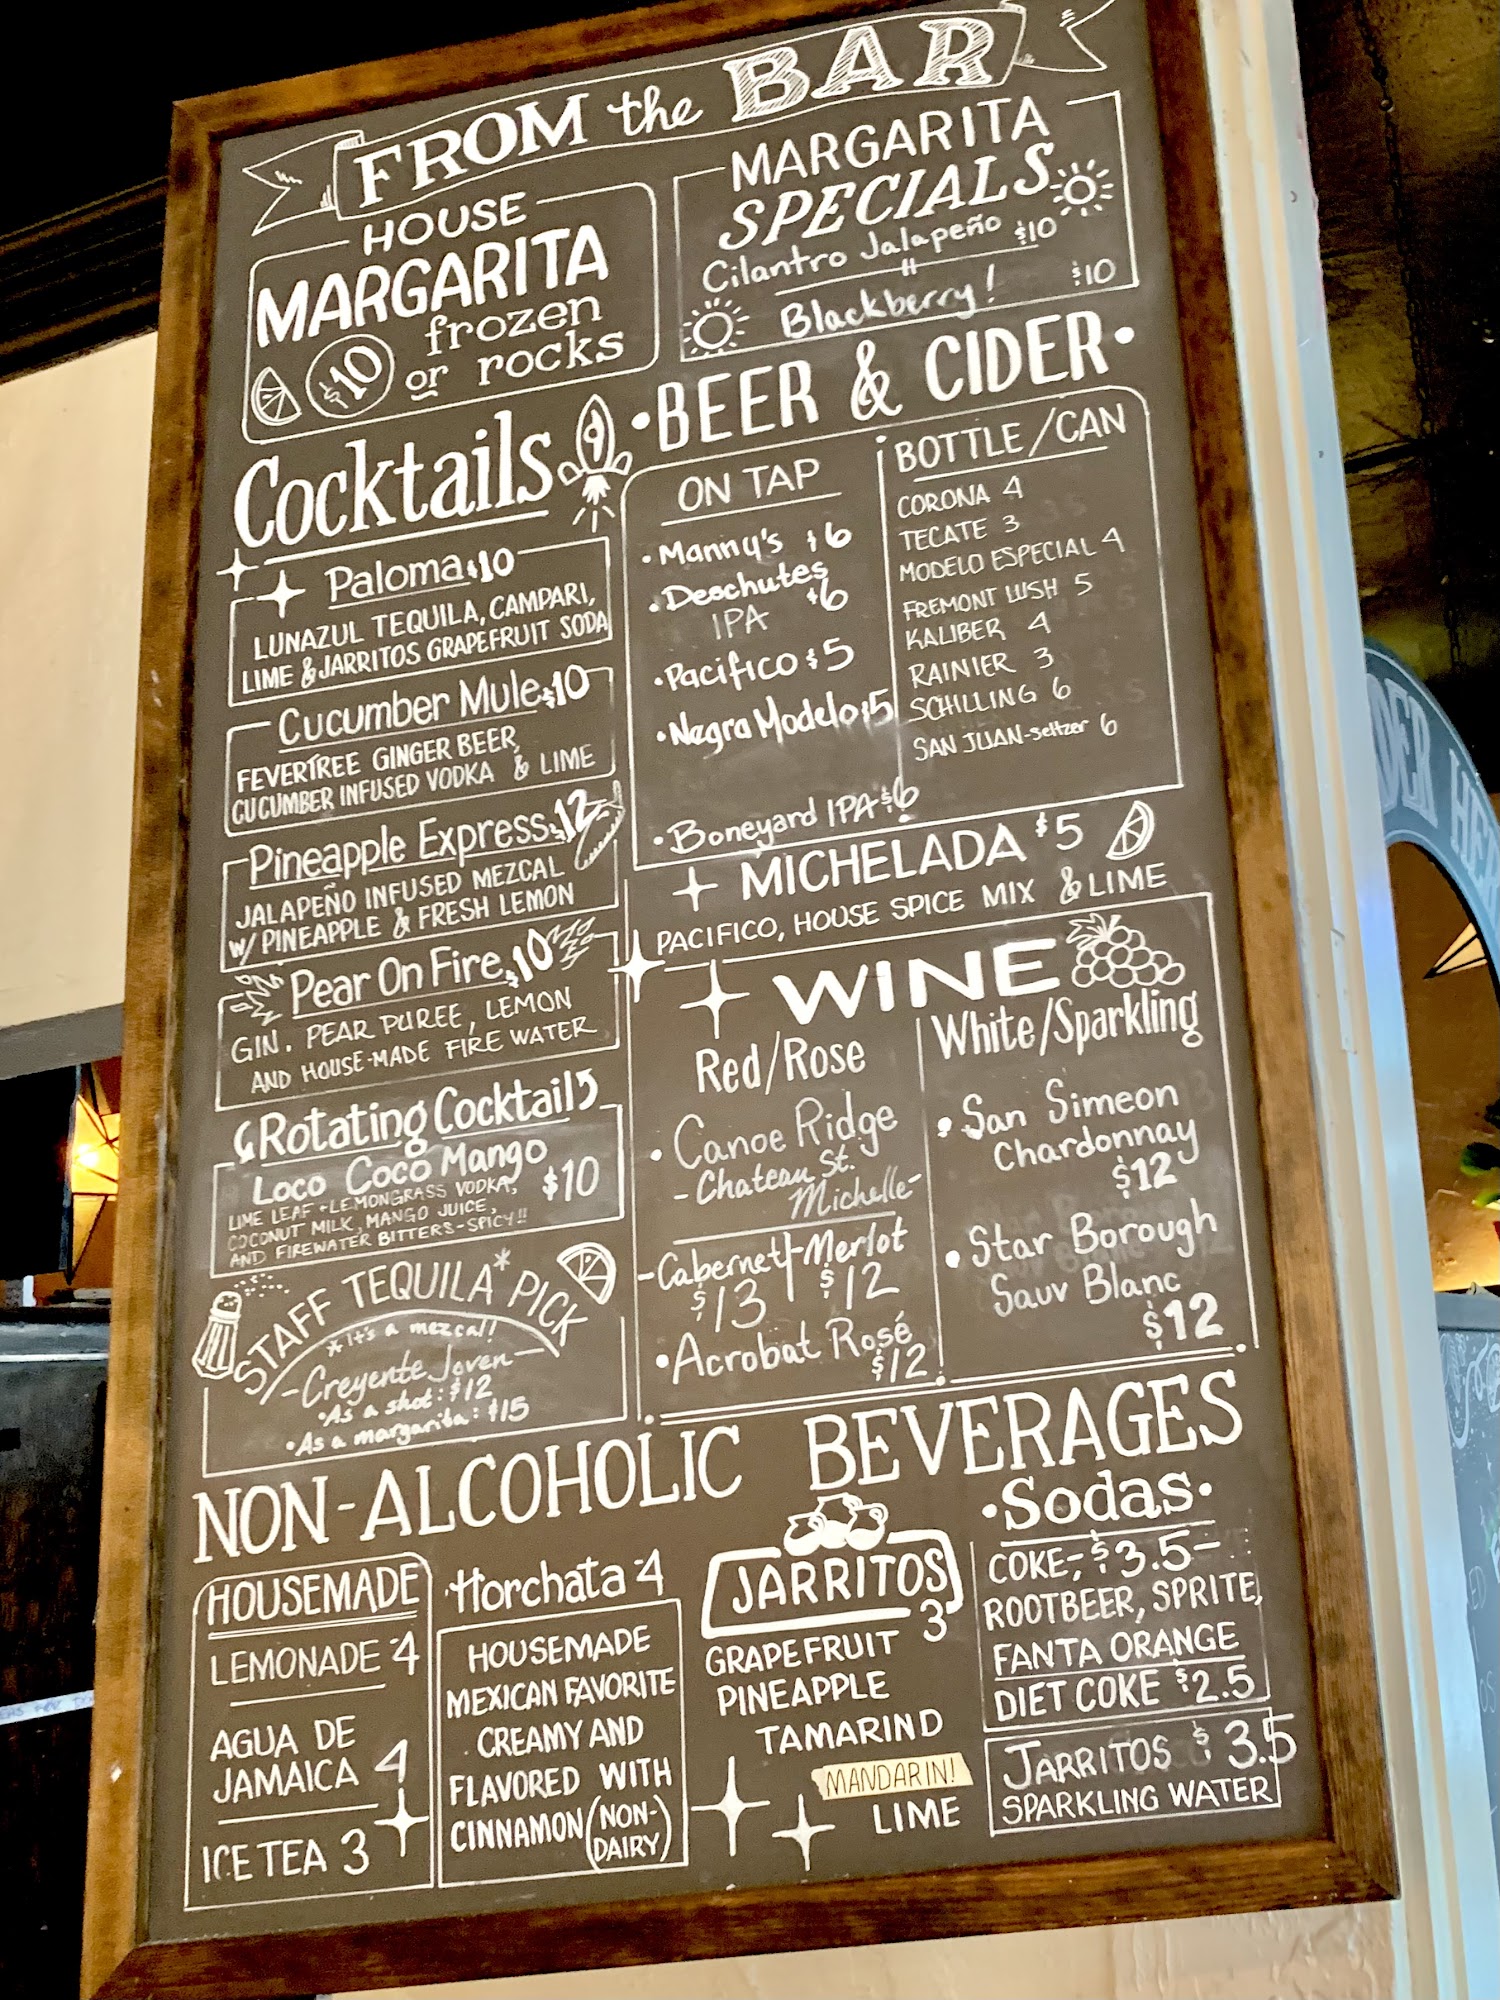 FROM the BAR
HOUSE
MARGARITA
$10 frozen
or rocks
MARGARITA
SPECIALS
Cilantro Jalapeño $10
"
Blackberry! $10
Cocktails
Paloma $10
LUNAZUL TEQUILA, CAMPARI,
LIME & JARRITOS GRAPEFRUIT SODA
Cucumber Mule $10
FEVERTREE GINGER BEER,
CUCUMBER INFUSED VODKA & LIME
Pineapple Express $12
JALAPEÑO INFUSED MEZCAL
W/ PINEAPPLE & FRESH LEMON
Pear On Fire $10
GIN, PEAR PUREE, LEMON
AND HOUSE-MADE FIRE WATER
Rotating Cocktail
Loco Coco Mango $10
LIME LEAF + LEMONGRASS VODKA,
COCONUT MILK, MANGO JUICE,
AND FIREWATER BITTERS-SPICY!!
STAFF TEQUILA* PICK
*it's a mezcal!
-Creyente Joven-
•As a shot: $12
•As a margarita: $15
•BEER & CIDER•
ON TAP
•Manny's $6
•Deschutes
IPA $6
•Pacifico $5
•Negra Modelo $5
•Boneyard IPA $6
BOTTLE/CAN
CORONA 4
TECATE 3
MODELO ESPECIAL 4
FREMONT LUSH 5
KALIBER 4
RAINIER 3
SCHILLING 6
SAN JUAN-seltzer 6
MICHELADA $5
PACIFICO, HOUSE SPICE MIX & LIME
WINE
Red/Rose
•Canoe Ridge
-Chateau St.
Michelle-
-Cabernet-Merlot
$13 $12
•Acrobat Rosé
$12
White/Sparkling
•San Simeon
Chardonnay
$12
•Star Borough
Sauv Blanc
$12
NON-ALCOHOLIC BEVERAGES
HOUSEMADE
LEMONADE 4
AGUA DE
JAMAICA 4
ICE TEA 3
Horchata 4
HOUSEMADE
MEXICAN FAVORITE
CREAMY AND
FLAVORED WITH
CINNAMON (NON-
DAIRY)
JARRITOS
3
GRAPEFRUIT
PINEAPPLE
TAMARIND
MANDARIN!
LIME
•Sodas•
COKE, $3.5-
ROOTBEER, SPRITE,
FANTA ORANGE
DIET COKE $2.5
JARRITOS $3.5
SPARKLING WATER